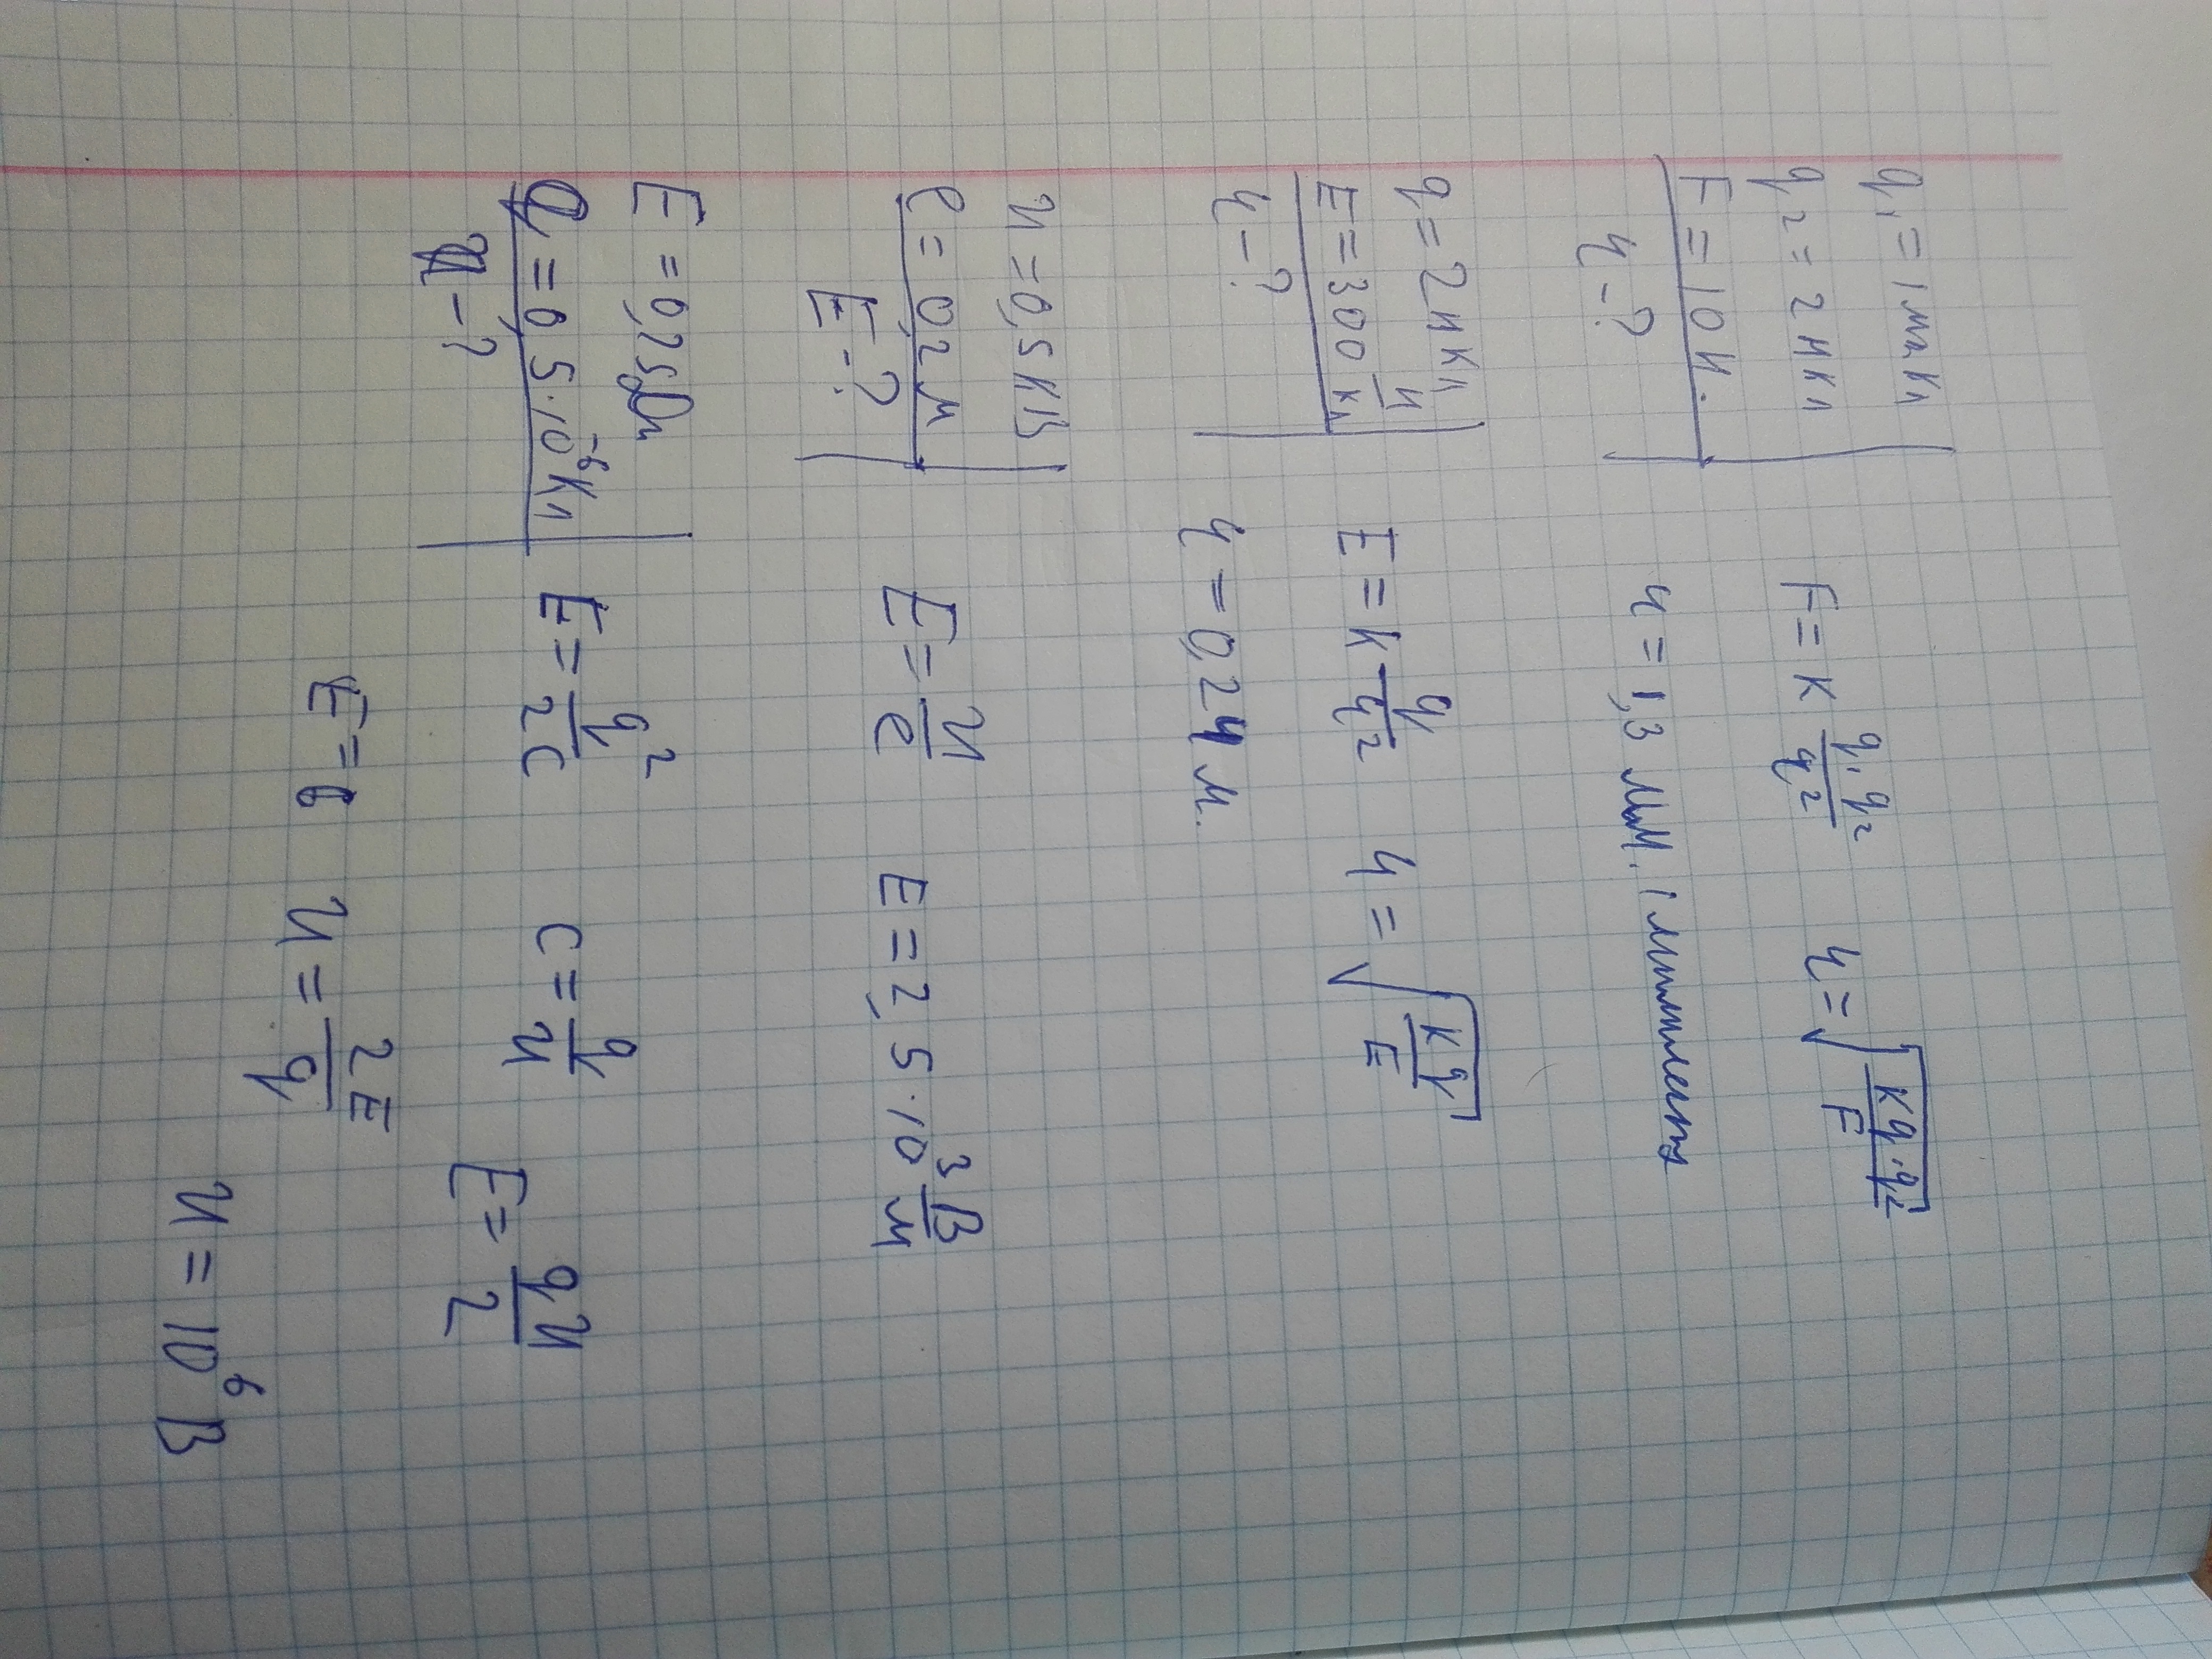 q₁ = 1мкКл
q₂ = 2нКл
F = 10 Н.
r - ?
F = k q₁q₂/r² r = √(kq₁q₂/F)
r = 1,3 мм. / миллиметр
q = 2нКл
E = 300 Н/Кл
r - ?
E = k q/r² r = √(kq/E)
r = 0,24 м.
U = 0,5 кВ
l = 0,2 м
E - ?
E = U/l E = 2,5·10³ В/м
E = 0,25Дж
q = 0,5·10⁻⁶Кл
U - ?
E = q²/2C C = q/U E = qU/2
E = U = 2E/q
U = 10⁶ В